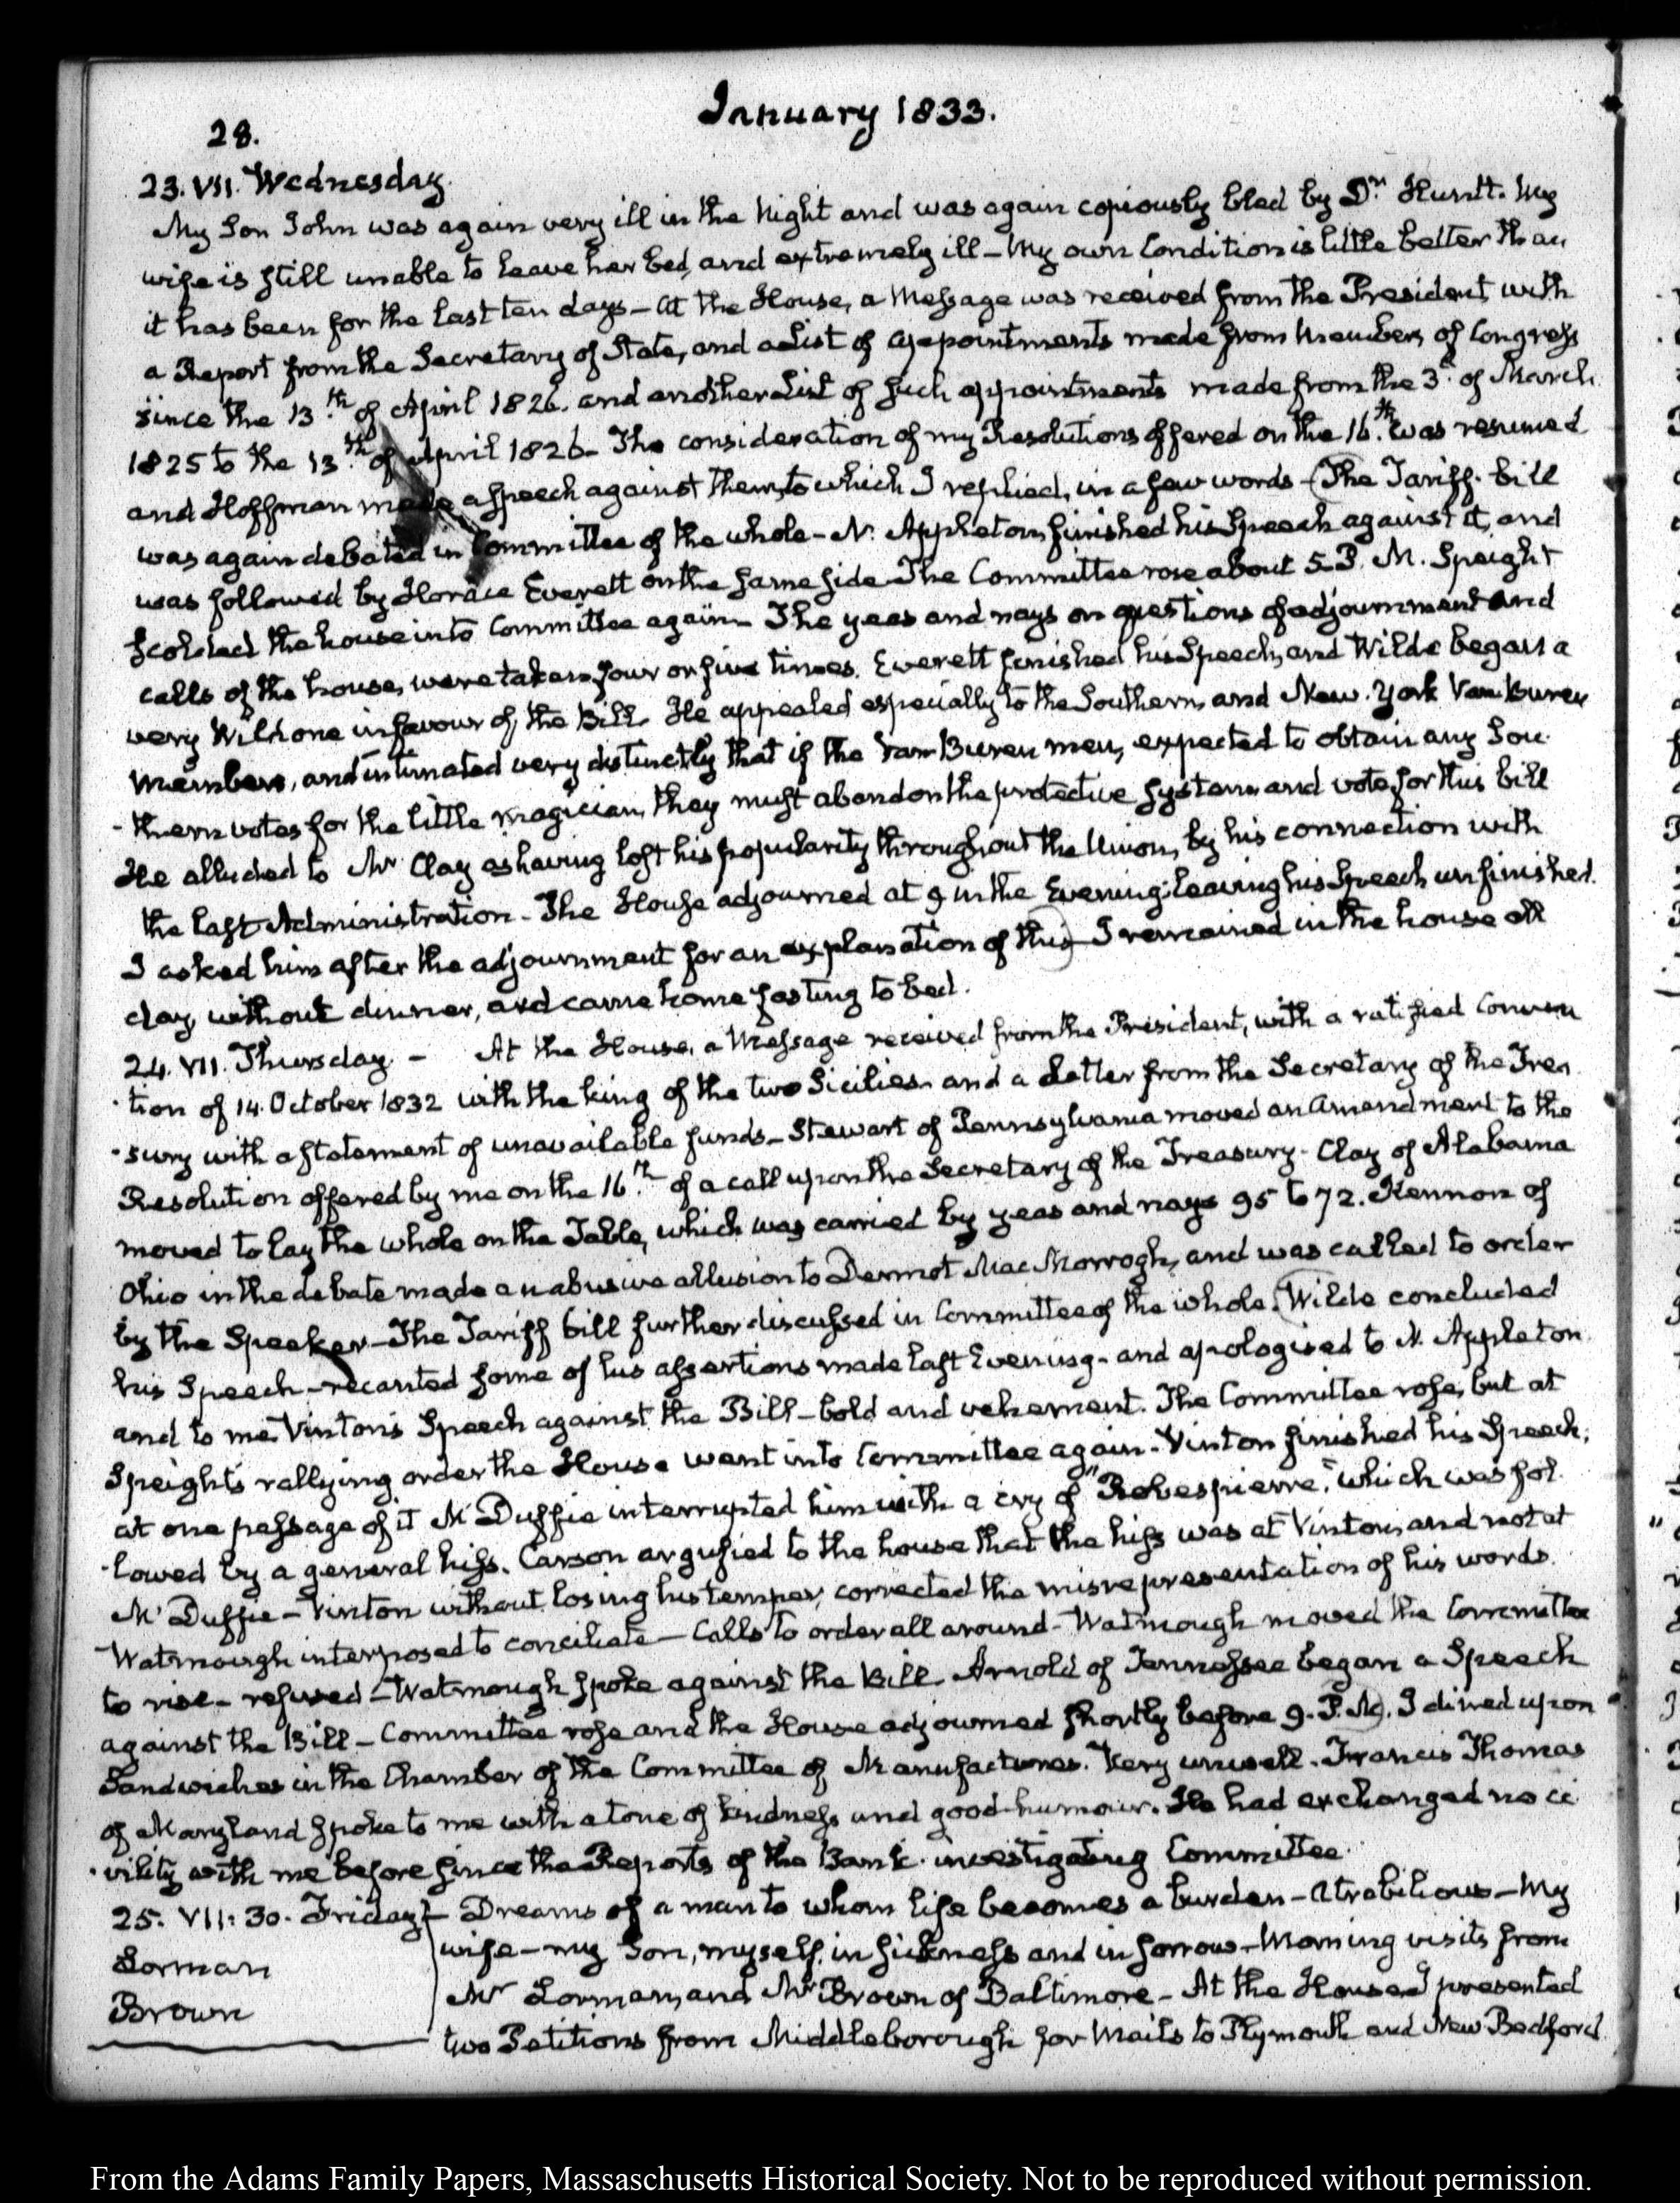 January 1833.
28.
23. VII. Wednesday.
My Son John was again very ill in the Night and was again copiously bled by Dr. Huntt. My
wife is still unable to leave her bed, and extremely ill – My own Condition is little better than
it has been for the last ten days – At the House, a Message was received from the President with
a Report from the Secretary of State, and a List of appointments made from Members of Congress
since the 13th. of April 1826. and another List of such appointments made from the 3d. of March
1825 to the 13th. of April 1826 – The consideration of my Resolutions offered on the 16th. was resumed
and Hoffman made a speech against them, to which I replied, in a few words – (The Tariff. bill
was again debated in Committee of the whole – N. Appleton finished his Speech against it, and
was followed by Horace Everett on the same side – The Committee rose about 5 P. M. Speight
scolded the house into Committee again – The yeas and nays on questions of adjournment and
calls of the house, were taken four or five times. Everett finished his Speech, and Wilde began a
very Wild one in favour of the Bill. He appealed especially to the Southern, and New. York Van Buren
Members, and intimated very distinctly that if the Van Buren men, expected to obtain any Sou-
-thern votes for the little magician, they must abandon the protective system, and vote for this bill
He alluded to Mr Clay as having lost his popularity throughout the Union, by his connection with
the last Administration – The House adjourned at 9 in the Evening: leaving his Speech unfinished.
I asked him after the adjournment for an explanation of this) – I remained in the house all
day, without dinner, and came home fasting to bed.
24. VII. Thursday – At the House, a Message received from the President, with a ratified Conven
-tion of 14. October 1832 with the king of the two Sicilies – and a Letter from the Secretary of the Trea
-sury with a statement of unavailable funds – Stewart of Pennsylvania moved an Amendment to the
Resolution offered by me on the 16th. of a call upon the Secretary of the Treasury – Clay of Alabama
moved to lay the whole on the Table, which was carried by yeas and nays 95 to 72. Kennon of
Ohio in the debate made an abusive allusion to Dermot Mac Morrogh, and was called to order
by the Speaker – The Tariff bill further discussed in Committee of the whole. (Wilde concluded
his Speech – recanted some of his assertions made last Evening – and apologised to N. Appleton
and to me. Vinton's Speech against the Bill – bold and vehement. The Committee rose, but at
Speight's rallying order the House went into Committee again – Vinton finished his Speech;
at one passage of it McDuffie interrupted him with a cry of "Robespierre", which was fol-
-lowed by a general hiss. Carson argufied to the house that the hiss was at Vinton, and not at
McDuffie – Vinton without losing his temper, corrected the misrepresentation of his words.
Watmough interposed to conciliate – Calls to order all around – Watmough moved the Committee
to rise – refused – Watmough spoke against the Bill. Arnold of Tennessee began a Speech
against the Bill – Committee rose and the House adjourned shortly before 9. P. M.). I dined upon
Sandwiches in the Chamber of the Committee of Manufactures. Very unwell. Francis Thomas
of Maryland spoke to me with a tone of kindness and good-humour. He had exchanged no ci
-vility with me before since the Reports of the Bank-investigating Committee.
25. VII: 30. Friday – Dreams of a man to whom life becomes a burden – Atrabilious – My
Lorman
wife – my Son, myself, in sickness and in sorrow – Morning visits from
Brown
Mr Lorman, and Mr Brown of Baltimore – At the House I presented
two Petitions from Middleborough for Mails to Plymouth and New Bedford
From the Adams Family Papers, Massachusetts Historical Society. Not to be reproduced without permission.